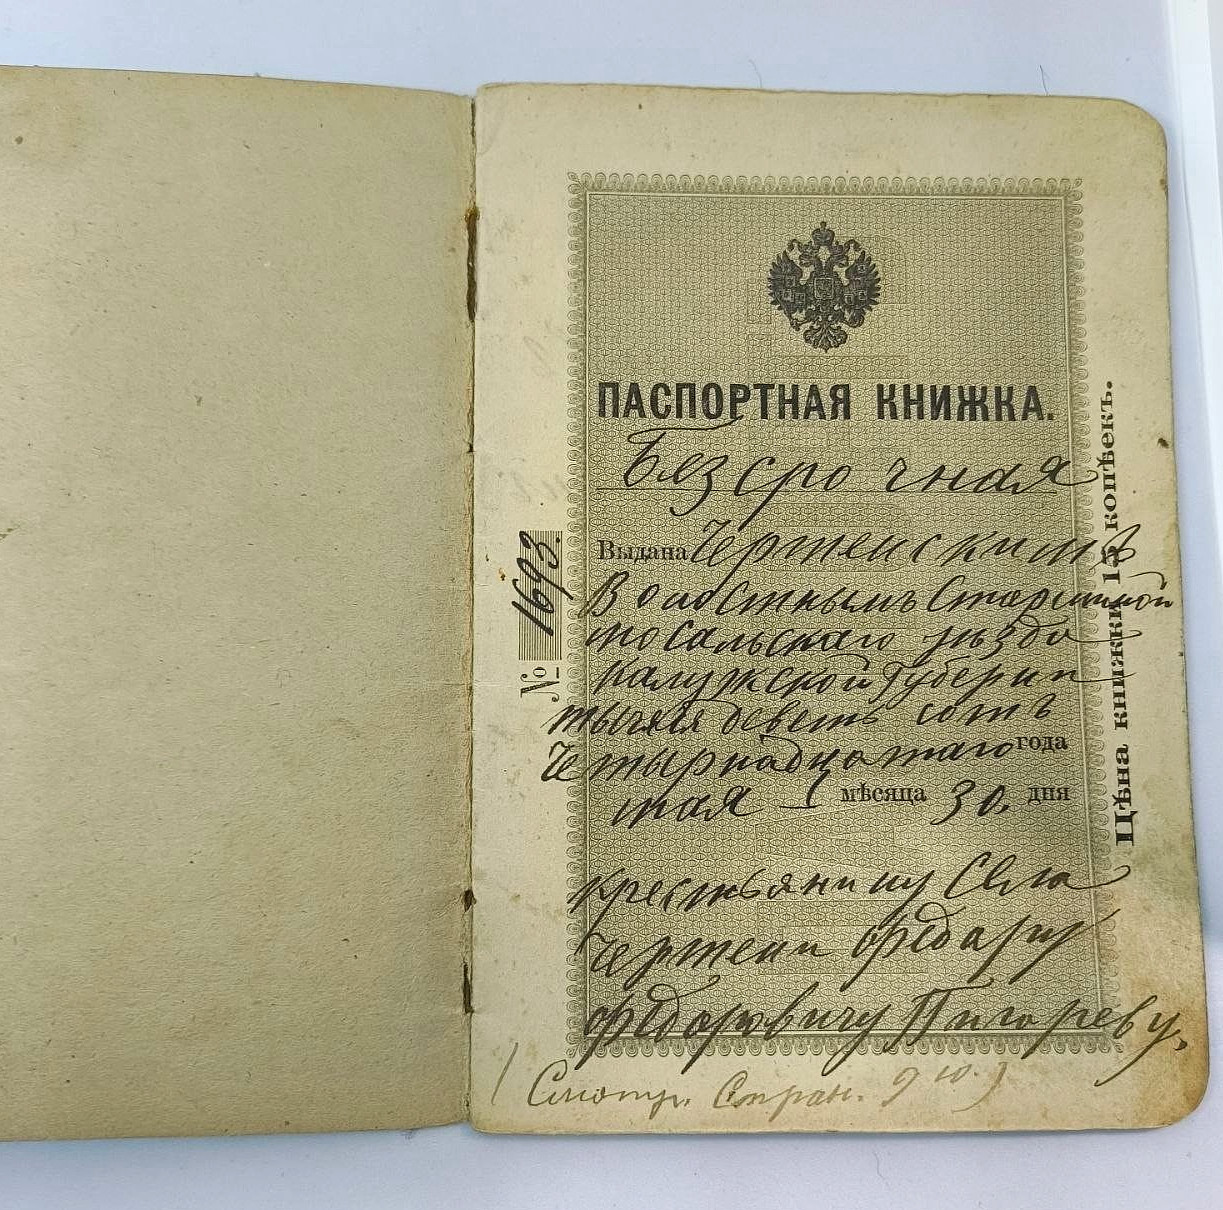 ПАСПОРТНАЯ КНИЖКА.
Безсрочная
Выдана Чертенскимъ
Волостнымъ Старшиной
мосальскаго уѣзда
Калужской Губерніи
тысяча деветь сотъ
Четырнадцатаго года
мая мѣсяца 30. дня
крестьянину Села
Чертени Федару
Федоровичу Пигореву,
(Смотр. Стран. 9ю.)
№ 1693.
Цѣна книжки 15 копѣекъ.